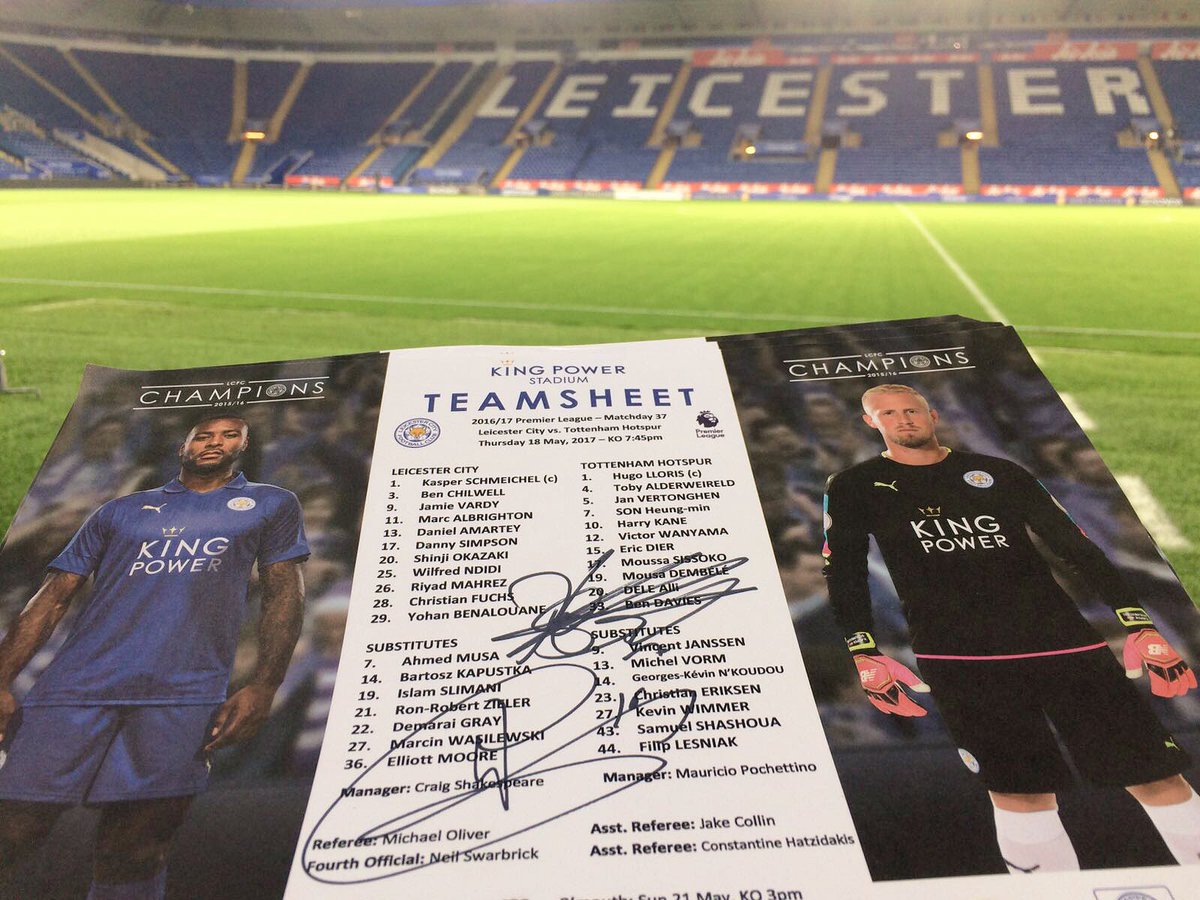 LEICESTER
LCFC
CHAMPIONS
2015/16
KING POWER
KING POWER
STADIUM
TEAMSHEET
2016/17 Premier League – Matchday 37
Leicester City vs. Tottenham Hotspur
Thursday 18 May, 2017 – KO 7:45pm
Premier
League
LEICESTER CITY
1. Kasper SCHMEICHEL (c)
3. Ben CHILWELL
9. Jamie VARDY
11. Marc ALBRIGHTON
13. Daniel AMARTEY
17. Danny SIMPSON
20. Shinji OKAZAKI
25. Wilfred NDIDI
26. Riyad MAHREZ
28. Christian FUCHS
29. Yohan BENALOUANE
SUBSTITUTES
7. Ahmed MUSA
14. Bartosz KAPUSTKA
19. Islam SLIMANI
21. Ron-Robert ZIELER
22. Demarai GRAY
27. Marcin WASILEWSKI
36. Elliott MOORE
Manager: Craig Shakespeare
Referee: Michael Oliver
Fourth Official: Neil Swarbrick
TOTTENHAM HOTSPUR
1. Hugo LLORIS (c)
4. Toby ALDERWEIRELD
5. Jan VERTONGHEN
7. SON Heung-min
10. Harry KANE
12. Victor WANYAMA
15. Eric DIER
17. Moussa SISSOKO
19. Mousa DEMBÉLÉ
20. DELE Alli
33. Ben DAVIES
SUBSTITUTES
9. Vincent JANSSEN
13. Michel VORM
14. Georges-Kévin N'KOUDOU
23. Christian ERIKSEN
27. Kevin WIMMER
43. Samuel SHASHOUA
44. Filip LESNIAK
Manager: Mauricio Pochettino
Asst. Referee: Jake Collin
Asst. Referee: Constantine Hatzidakis
Sun 21 May, KO 3pm
LCFC
CHAMPIONS
2015/16
KING
POWER